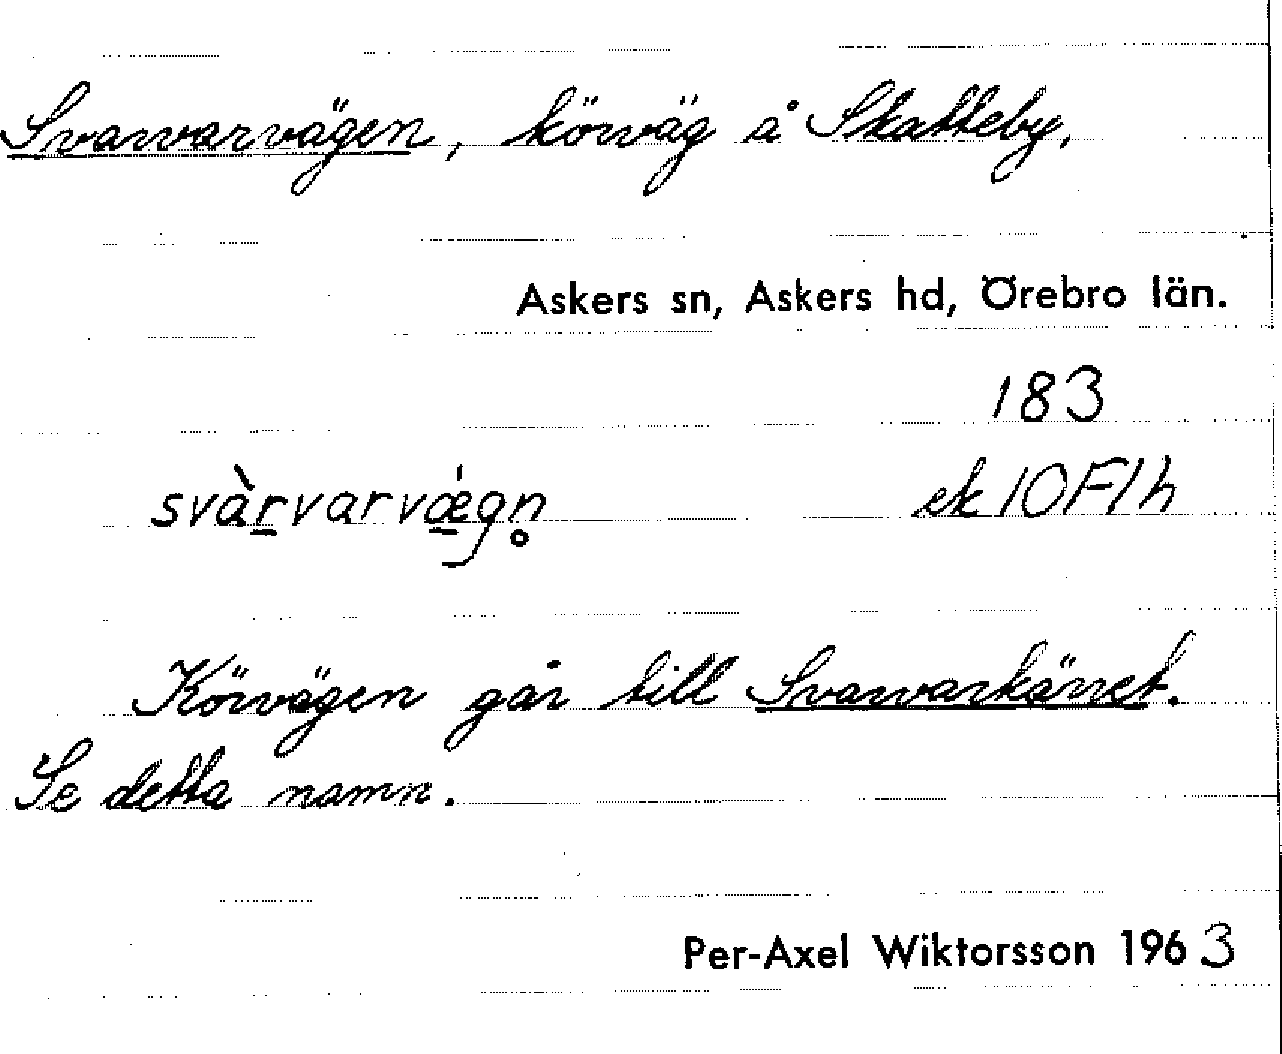 Svarvarvägen, körväg å Skatteby,
Askers sn, Askers hd, Örebro län.
183
svàrvarvǽgn̥ ek 10F1h
Körvägen går till Svarvarkärret.
Se detta namn.
Per-Axel Wiktorsson 1963